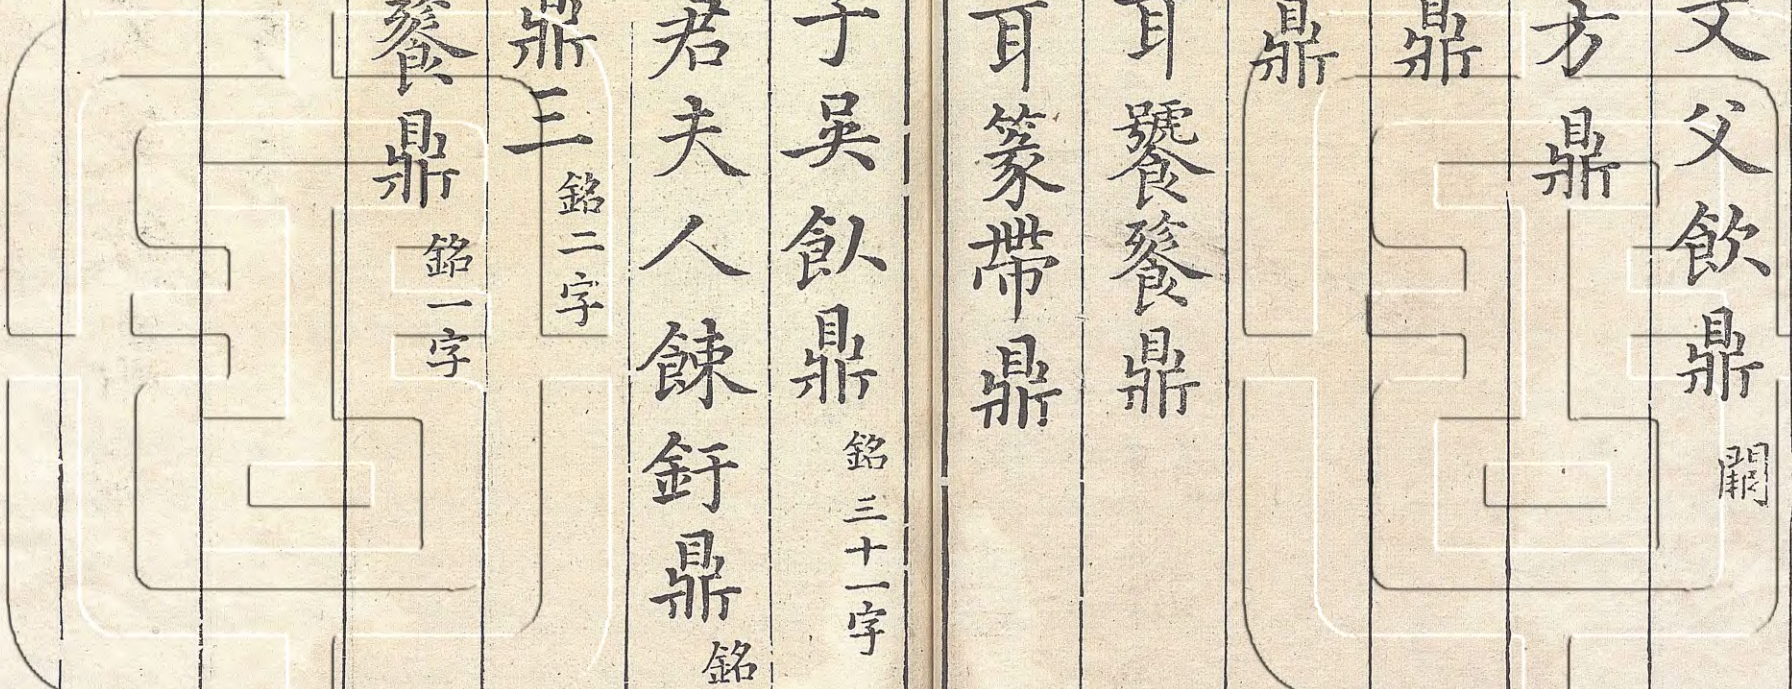 父飲鼎闕
方鼎
鼎
鼎
耳饕餮鼎
耳篆帶鼎
吳飤鼎銘三十一字
君夫人餗釪鼎銘
鼎三銘二字
餮鼎銘一字